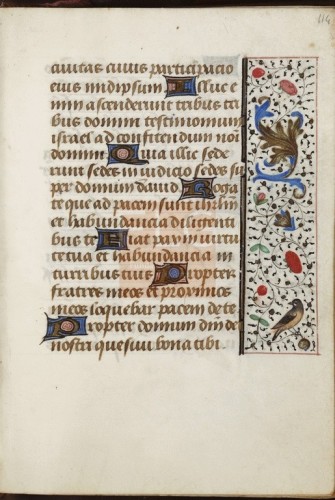 114
civitas cuius participacio
eius in idipsum Illuc e
nim ascenderunt tribus tri
bus domini testimonium
israel ad confitendum noī
domini Quia illic sede
runt sedes in iudicio sedes su
per domum david Roga
te que ad pacem sunt ihrlm
et habundancia diligenti
bus te Fiat pax in virtu
te tua et habundancia in
turribus tuis Propter
fratres meos et proximos
meos loquebar pacem de te
Propter domum dm̄ dei
nostri quesivi bona tibi